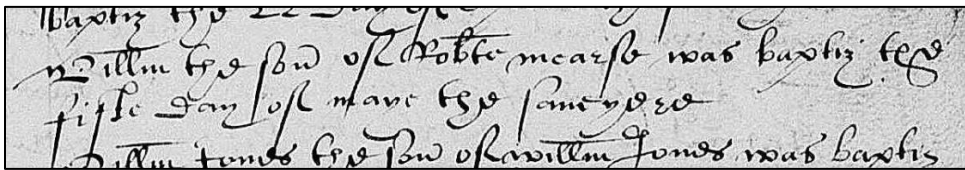 baptiz the 22 day of
Willm the son of Robte mearse was baptiz the
fifte day of maye the same yere
Willm Jones the son of willm Jones was baptiz